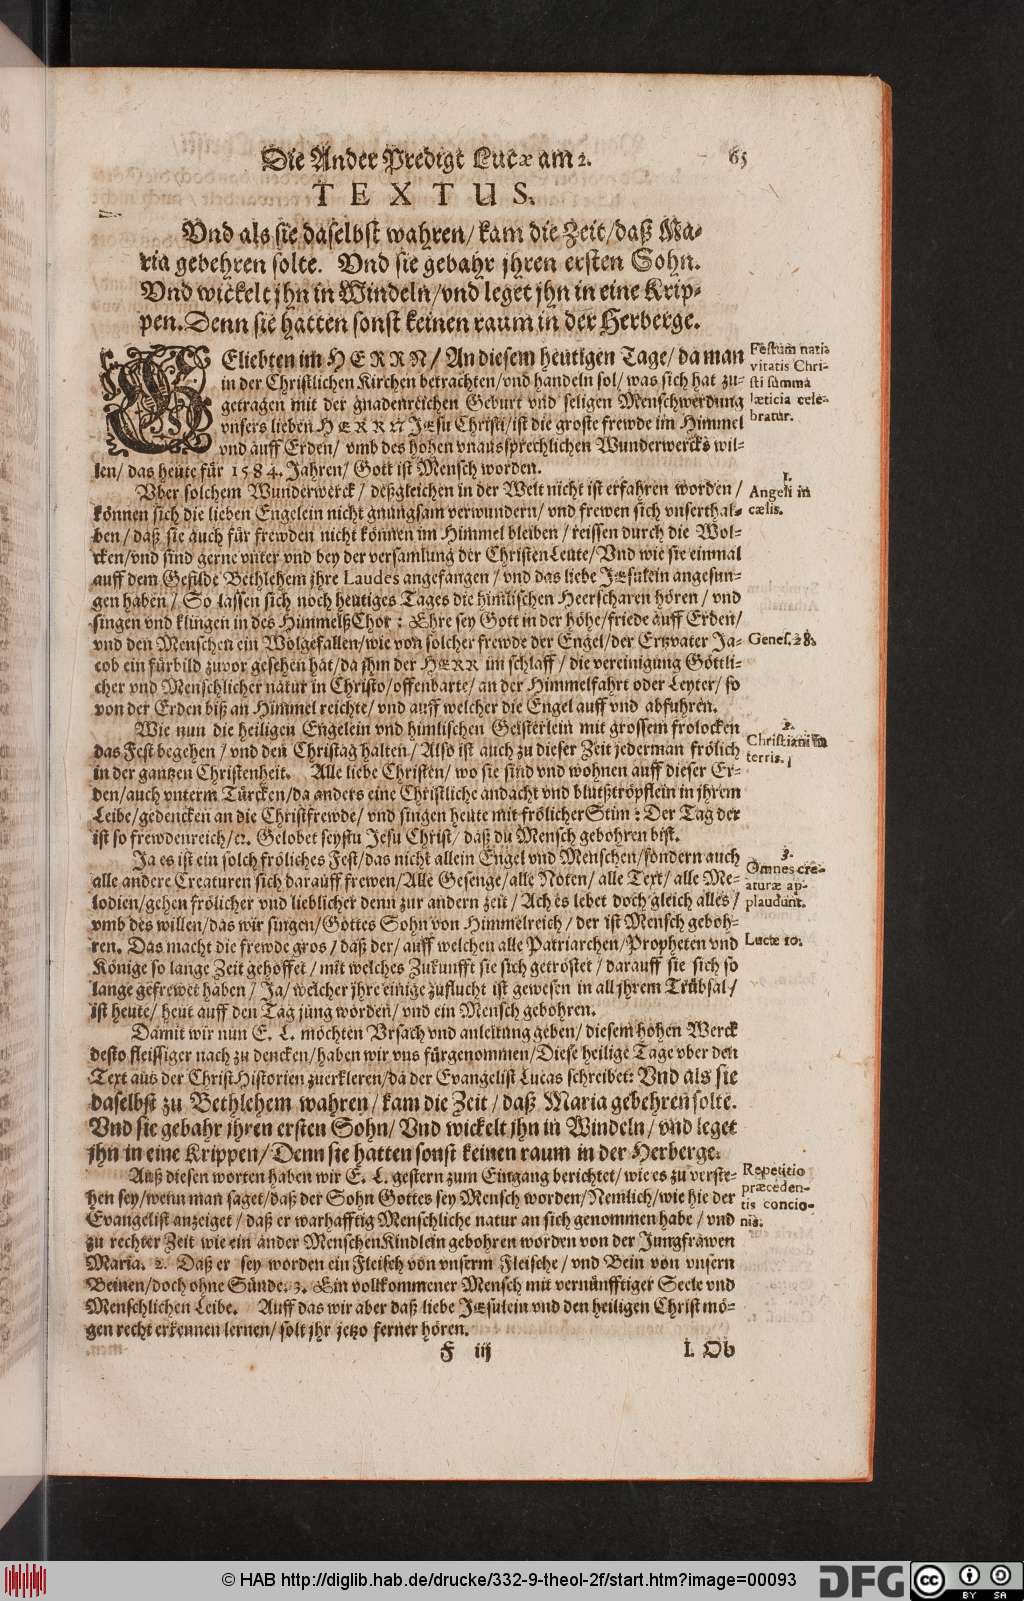 Die Ander Predigt Lucæ am 2. 65
TEXTUS.
Vnd als sie daselbst wahren/ kam die Zeit/daß Ma-
ria gebehren solte. Vnd sie gebahr jhren ersten Sohn.
Vnd wickelt jhn in Windeln/vnd leget jhn in eine Krip-
pen. Denn sie hatten sonst keinen raum in der Herberge.
GEliebten im HERRN/ An diesem heutigen Tage/ da man
in der Christlichen Kirchen betrachten/vnd handeln sol/ was sich hat zu-
getragen mit der gnadenreichen Geburt vnd seligen Menschwerdung
vnsers lieben HERRN JEsu Christi/ist die groste frewde im Himmel
vnd auff Erden/ vmb des hohen vnaussprechlichen Wunderwercks wil-
len/ das heute für 1584. Jahren/ Gott ist Mensch worden.
Festum nati-
vitatis Chri-
sti summa
læticia cele-
bratur.
Vber solchem Wunderwerck/ deßgleichen in der Welt nicht ist erfahren worden/
können sich die lieben Engelein nicht gnungsam verwundern/ vnd frewen sich vnserthal-
ben/ daß sie auch für frewden nicht können im Himmel bleiben/ reissen durch die Wol-
cken/vnd sind gerne vnter vnd bey der versamlung der ChristenLeute/ Vnd wie sie einmal
auff dem Gefilde Bethlehem jhre Laudes angefangen/ vnd das liebe JEsulein angesun-
gen haben/ So lassen sich noch heutiges Tages die himlischen Heerscharen hören/ vnd
singen vnd klingen in des HimmelßChor: Ehre sey Gott in der höhe/friede auff Erden/
vnd den Menschen ein Wolgefallen/wie von solcher frewde der Engel/der Ertzvater Ja-
cob ein fürbild zuvor gesehen hat/da jhm der HERR im schlaff/ die vereinigung Göttli-
cher vnd Menschlicher natur in Christo/offenbarte/ an der Himmelfahrt oder Leyter/ so
von der Erden biß an Himmel reichte/ vnd auff welcher die Engel auff vnd abfuhren.
1.
Angeli in
cælis.
Genes. 28.
Wie nun die heiligen Engelein vnd himlischen Geisterlein mit grossem frolocken
das Fest begehen/ vnd den Christag halten/ Also ist auch zu dieser Zeit jederman frölich
in der gantzen Christenheit. Alle liebe Christen/ wo sie sind vnd wohnen auff dieser Er-
den/auch vnterm Türcken/da anders eine Christliche andacht vnd blutßtröpflein in jhrem
Leibe/gedencken an die Christfrewde/ vnd singen heute mit frölicher Stim: Der Tag der
ist so frewdenreich/ꝛc. Gelobet seystu Jesu Christ/ daß du Mensch gebohren bist.
2.
Christiani in
terris.
Ja es ist ein solch fröliches Fest/das nicht allein Engel vnd Menschen/sondern auch
alle andere Creaturen sich darauff frewen/Alle Gesenge/alle Noten/ alle Text/ alle Me-
lodien/gehen frölicher vnd lieblicher denn zur andern zeit/ Ach es lebet doch gleich alles/
vmb des willen/das wir singen/Gottes Sohn von Himmelreich/ der ist Mensch geboh-
ren. Das macht die frewde gros/ daß der/ auff welchen alle Patriarchen/Propheten vnd
Könige so lange Zeit gehoffet/ mit welches Zukunfft sie sich getröstet/ darauff sie sich so
lange gefrewet haben/ Ja/ welcher jhre einige zuflucht ist gewesen in all jhrem Trübsal/
ist heute/ heut auff den Tag jung worden/ vnd ein Mensch gebohren.
3.
Omnes cre-
aturæ ap-
plaudunt.
Lucæ 10.
Damit wir nun E. L. möchten Vrsach vnd anleitung geben/ diesem hohen Werck
desto fleissiger nach zu dencken/haben wir vns fürgenommen/Diese heilige Tage vber den
Text aus der ChristHistorien zuerkleren/da der Evangelist Lucas schreibet: Vnd als sie
daselbst zu Bethlehem wahren/ kam die Zeit/ daß Maria gebehren solte.
Vnd sie gebahr jhren ersten Sohn/ Vnd wickelt jhn in Windeln/ vnd leget
jhn in eine Krippen/Denn sie hatten sonst keinen raum in der Herberge.
Auß diesen worten haben wir E. L. gestern zum Eingang berichtet/ wie es zu verste-
hen sey/wenn man saget/daß der Sohn Gottes sey Mensch worden/Nemlich/wie hie der
Evangelist anzeiget/ daß er warhafftig Menschliche natur an sich genommen habe/ vnd
zu rechter Zeit wie ein ander MenschenKindlein gebohren worden von der Jungfrawen
Maria. 2. Daß er sey worden ein Fleisch von vnserm Fleische/ vnd Bein von vnsern
Beinen/doch ohne Sünde. 3. Ein vollkommener Mensch mit vernünfftiger Seele vnd
Menschlichen Leibe. Auff das wir aber daß liebe JEsulein vnd den heiligen Christ mö-
gen recht erkennen lernen/ solt jhr jetzo ferner hören.
Repetitio
præceden-
tis concio-
nis.
F iij I. Ob
© HAB http://diglib.hab.de/drucke/332-9-theol-2f/start.htm?image=00093
DFG
cc BY SA